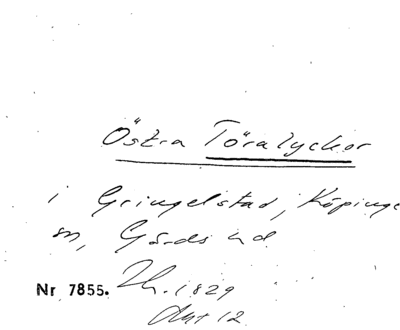 Östra Töralyckor
i Gringelstad, Köpinge
sn, Gärds hd
Nr 7855. Lh. 1829
Akt 12